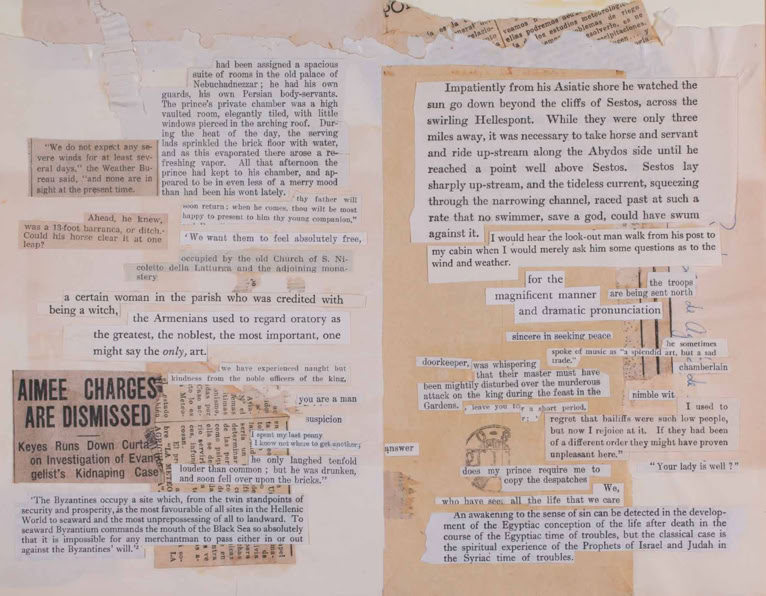 had been assigned a spacious
suite of rooms in the old palace of
Nebuchadnezzar; he had his own
guards, his own Persian body-servants.
The prince's private chamber was a high
vaulted room, elegantly tiled, with little
windows pierced in the arching roof. Dur-
ing the heat of the day, the serving
lads sprinkled the brick floor with water,
and as this evaporated there arose a re-
freshing vapor. All that afternoon the
prince had kept to his chamber, and ap-
peared to be in even less of a merry mood
than had been his wont lately.
"We do not expect any se-
vere winds for at least sev-
eral days," the Weather Bu-
reau said, "and none are in
sight at the present time.
thy father will
soon return; when he comes, thou wilt be most
happy to present to him thy young companion,"
Ahead, he knew,
was a 13-foot barranca, or ditch.
Could his horse clear it at one
leap?
'We want them to feel absolutely free,
occupied by the old Church of S. Ni-
coletto della Lattuca and the adjoining mona-
stery
a certain woman in the parish who was credited with
being a witch,
the Armenians used to regard oratory as
the greatest, the noblest, the most important, one
might say the only, art.
we have experienced naught but
kindness from the noble officers of the king,
AIMEE CHARGES
ARE DISMISSED
Keyes Runs Down Curta
on Investigation of Evan-
gelist's Kidnaping Case
you are a man
suspicion
I spent my last penny
I know not where to get another;
he only laughed tenfold
louder than common; but he was drunken,
and soon fell over upon the bricks."
'The Byzantines occupy a site which, from the twin standpoints of
security and prosperity, is the most favourable of all sites in the Hellenic
World to seaward and the most unprepossessing of all to landward. To
seaward Byzantium commands the mouth of the Black Sea so absolutely
that it is impossible for any merchantman to pass either in or out
against the Byzantines' will.'²
veamos
ellas podremos
los estudios meteorolog
problemas de riego
Impatiently from his Asiatic shore he watched the
sun go down beyond the cliffs of Sestos, across the
swirling Hellespont. While they were only three
miles away, it was necessary to take horse and servant
and ride up-stream along the Abydos side until he
reached a point well above Sestos. Sestos lay
sharply up-stream, and the tideless current, squeezing
through the narrowing channel, raced past at such a
rate that no swimmer, save a god, could have swum
against it.
I would hear the look-out man walk from his post to
my cabin when I would merely ask him some questions as to the
wind and weather.
for the
magnificent manner
and dramatic pronunciation
the troops
are being sent north
sincere in seeking peace
he sometimes
spoke of music as "a splendid art, but a sad
trade."
chamberlain
doorkeeper, was whispering
that their master must have
been mightily disturbed over the murderous
attack on the king during the feast in the
Gardens.
nimble wit
leave you
a short period,
I used to
regret that bailiffs were such low people,
but now I rejoice at it. If they had been
of a different order they might have proven
unpleasant here."
answer
"Your lady is well?"
does my prince require me to
copy the despatches
We,
who have see; all the life that we care
An awakening to the sense of sin can be detected in the develop-
ment of the Egyptiac conception of the life after death in the
course of the Egyptiac time of troubles, but the classical case is
the spiritual experience of the Prophets of Israel and Judah in
the Syriac time of troubles.